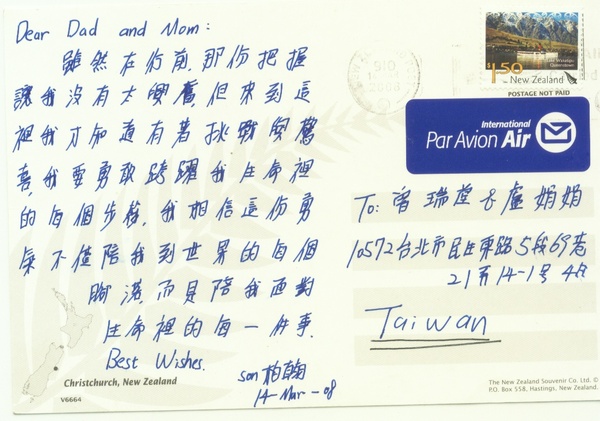 Dear Dad and Mom:
雖然在行前，那份把握
讓我沒有太興奮但來到這
裡我才知道有著挑戰與驚
喜，我要勇敢跨躍我生命裡
的每個步移，我相信這份勇
氣不僅陪我到世界的每個
腳落，而且陪我面對
生命裡的每一件事.
Best Wishes.
son 柏翰
14-Mar-08
Christchurch, New Zealand
V6664
910
2008
Lake Wakatipu
Queenstown
1.50
New Zealand
POSTAGE NOT PAID
International
Par Avion Air
To: 曾瑞堂 & 盧娟娟
10572台北市民生東路5段69巷
21弄14-1号4F
Taiwan
The New Zealand Souvenir Co. Ltd.
P.O. Box 558, Hastings, New Zealand.